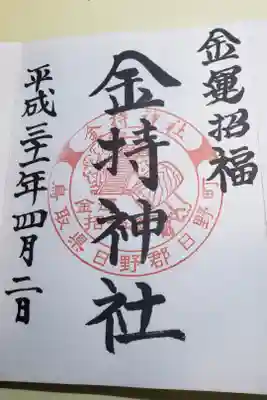 金運招福
金持神社
平成三十一年四月二日
金持神社
鳥取県日野郡日野町
金持